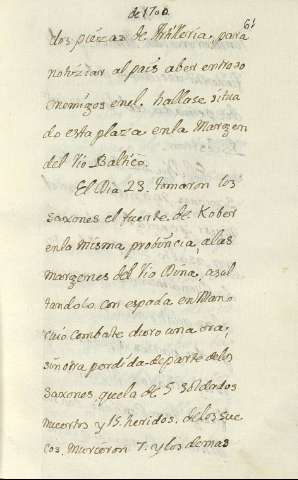 de 1700.
61
dos piézas de Artilleria, para
notiziar al pais aber entrado
enemigos enel. hallase situa
do esta plaza en la Margen
del Rio Baltico.
El Dia 23. tomaron los
saxones el fuerte de Kober
en la misma probinçia, a las
margenes del Rio Duna, asal
tandolo con espada en Mano
cuio combate duro una ora,
sin otra perdida de parte delos
saxones que la de 5 soldados
muertos y 15. heridos. de los sue
cos murieron 7. y los demas